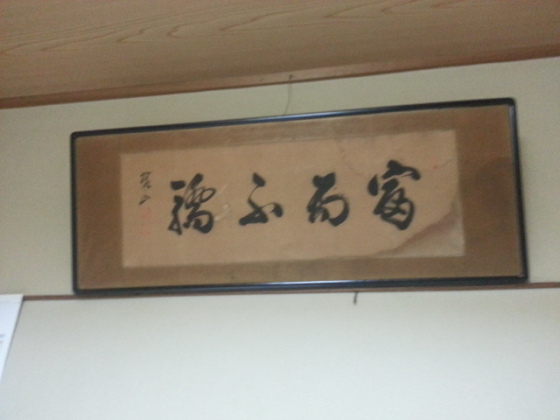 富而不驕